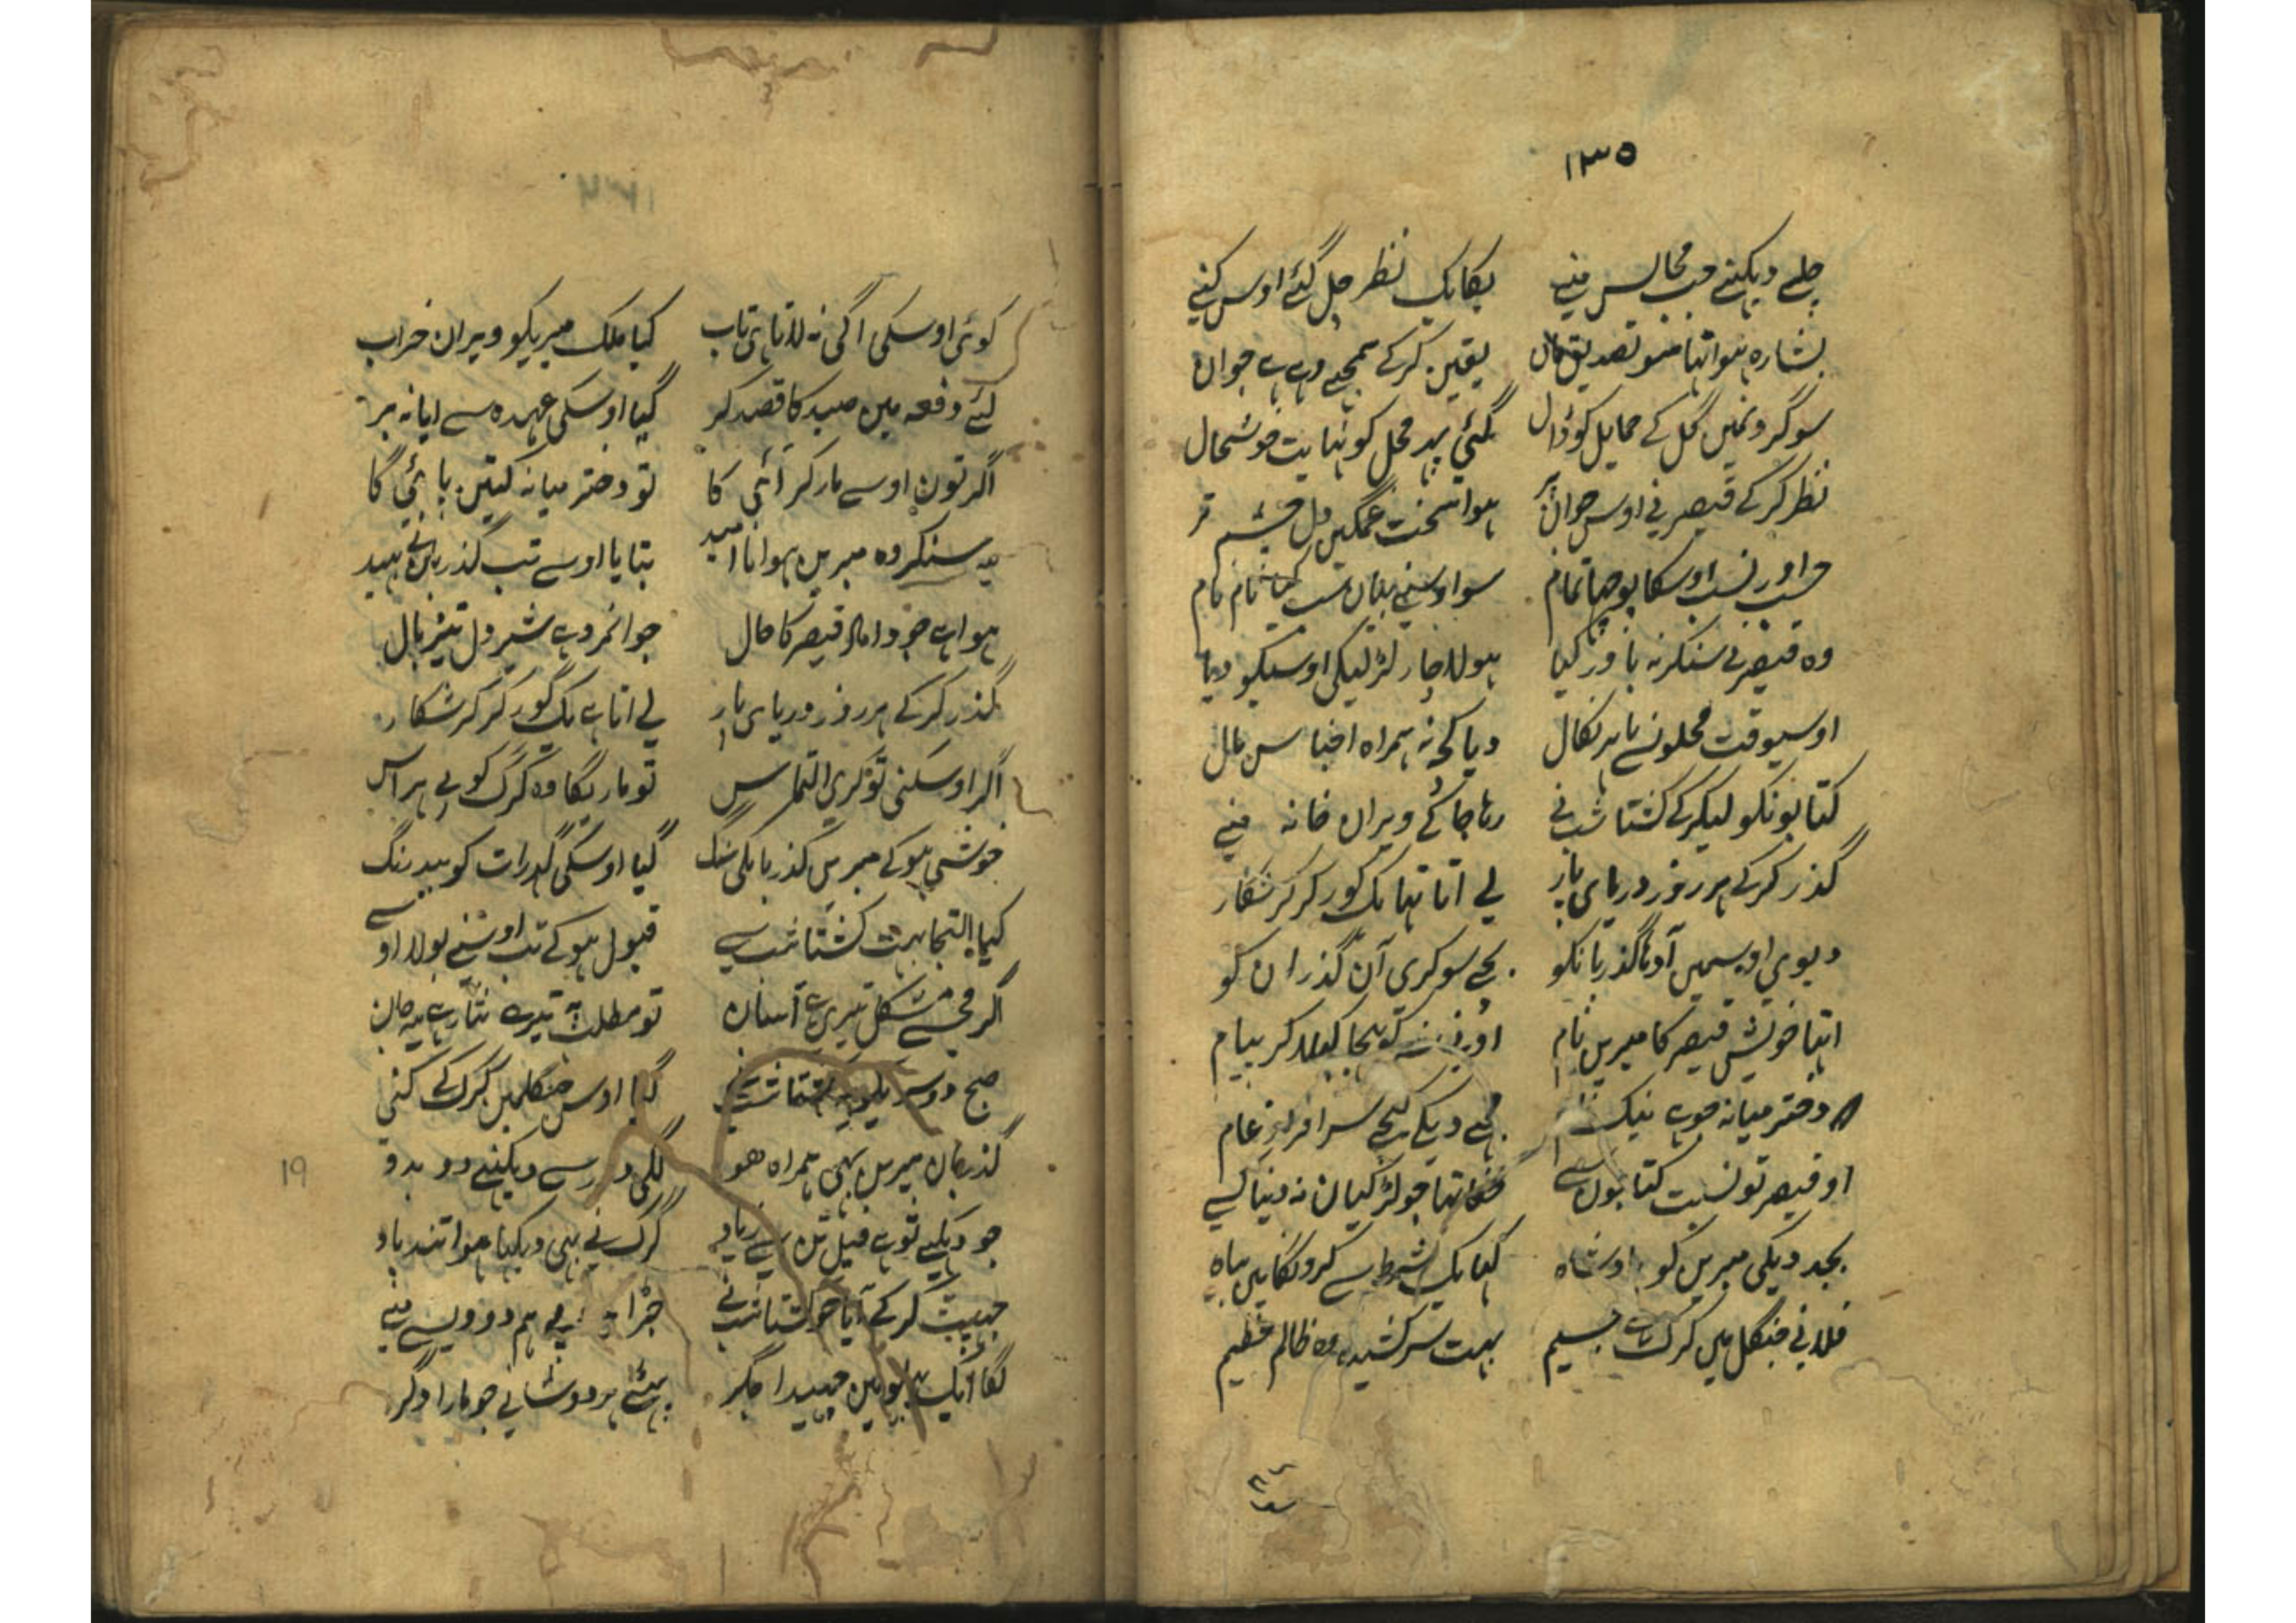 ۱۳۵
چلے دیکھنے جب مجالس منے یکایک نظر چل گئے اوس کنے
بشارہ ہوا تہا سو تصدیق مان یقین کرکے سمجھے وہی ہے جوان
سو گردنمیں گل کے حمایل کو ڈال گئی پہر محل کو نہایت خوشحال
نظر کر کے قیصر نے اوس جوان پر ہوا سخت غمگین دل چشم تر
حسب اور نسب اوسکا پوچھا تمام سو اوسنے بیان سب کیا نام نام
وہ قیصر نے سنکر نہ باور کیا ہو لاچار لڑکیکی اوسیکو دیا
اوسیوقت محلونسے باہر نکال دیا کچھ نہ ہمراہ اجناس مال
کتابونکو لیکر کے کشتاشب نے رہا جا کے ویران خانہ منے
گذر کر کے ہر روز دریای پار لے اتا تہا یک گور کر کر شکار
دیوی اوسمیں آدہا گذربانکو بچے سو کری آن گذران کو
اتہا خویش قیصر کا میریں نام اونے کو بہجا کہلا کر پیام
دختر میانہ جو ہے نیک مجھے دیکے کیجے سرافراز عام
او قیصر تو نسبت کتابوں سے خفا تہا جو لڑکیاں نہ دینا کسے
بجد دیکی میریں کو اوشاہ کہا یک شرط سے کرونگا میں بیاہ
فلانی جنگل میں گرگ ہے جسیم بہت سرکش ہے وہ ظالم عظیم
کوئی اوسکی اگی نہ لاتا ہی تاب کیا ملک میریکو ویران خراب
لئے دفعہ میں صید کا قصد کر گیا اوسکی عہدہ سے ایا نہ بر
اگر توں اوسے مار کر آئی گا تو دختر میانہ کیتیں پائی گا
یہ سنکر وہ میریں ہوا نا امید بتایا اوسے تب گذربان نے بہید
ہوا ہے جو داماد قیصر کا حال جوانمرد ہے شیر دل تیز بال
گذر کر کے ہر روز دریای پار لے اتا ہے یک گور کر کر شکار
اگر اوسکنی تو کری التماس تو ماریگا وہ گرگ کو بے ہراس
خوشی ہو کے میریں گذربانکی سنگ گیا اوسکی گہرات کو بیدرنگ
کیا التجا بہت کشتاشب سے قبول ہو کے تب اوسنے بولا اوسے
اگر مجھسے مشکل تیری ہے آسان تو مطلب پہ تیرے نثار ہے یہ جان
صبح دوسرے کشتاشب نے گیا اوس جنگلمیں گرگ کے کنی
گذربان میریں بہی ہمراہ ہو لگی دور سے دیکہنے دو بدو
جو دیکہے تو ہے فیل تن سے زیاد گرگ نے بہی دیکہا ہوا تند باد
جہپٹ کر کے آیا جو کشتاشب نے جڑا بہم دو ویسے منے
لگا ایک پہلو میں چہیدا جگر پہٹے ہر دو شانے جو مارا دگر
19